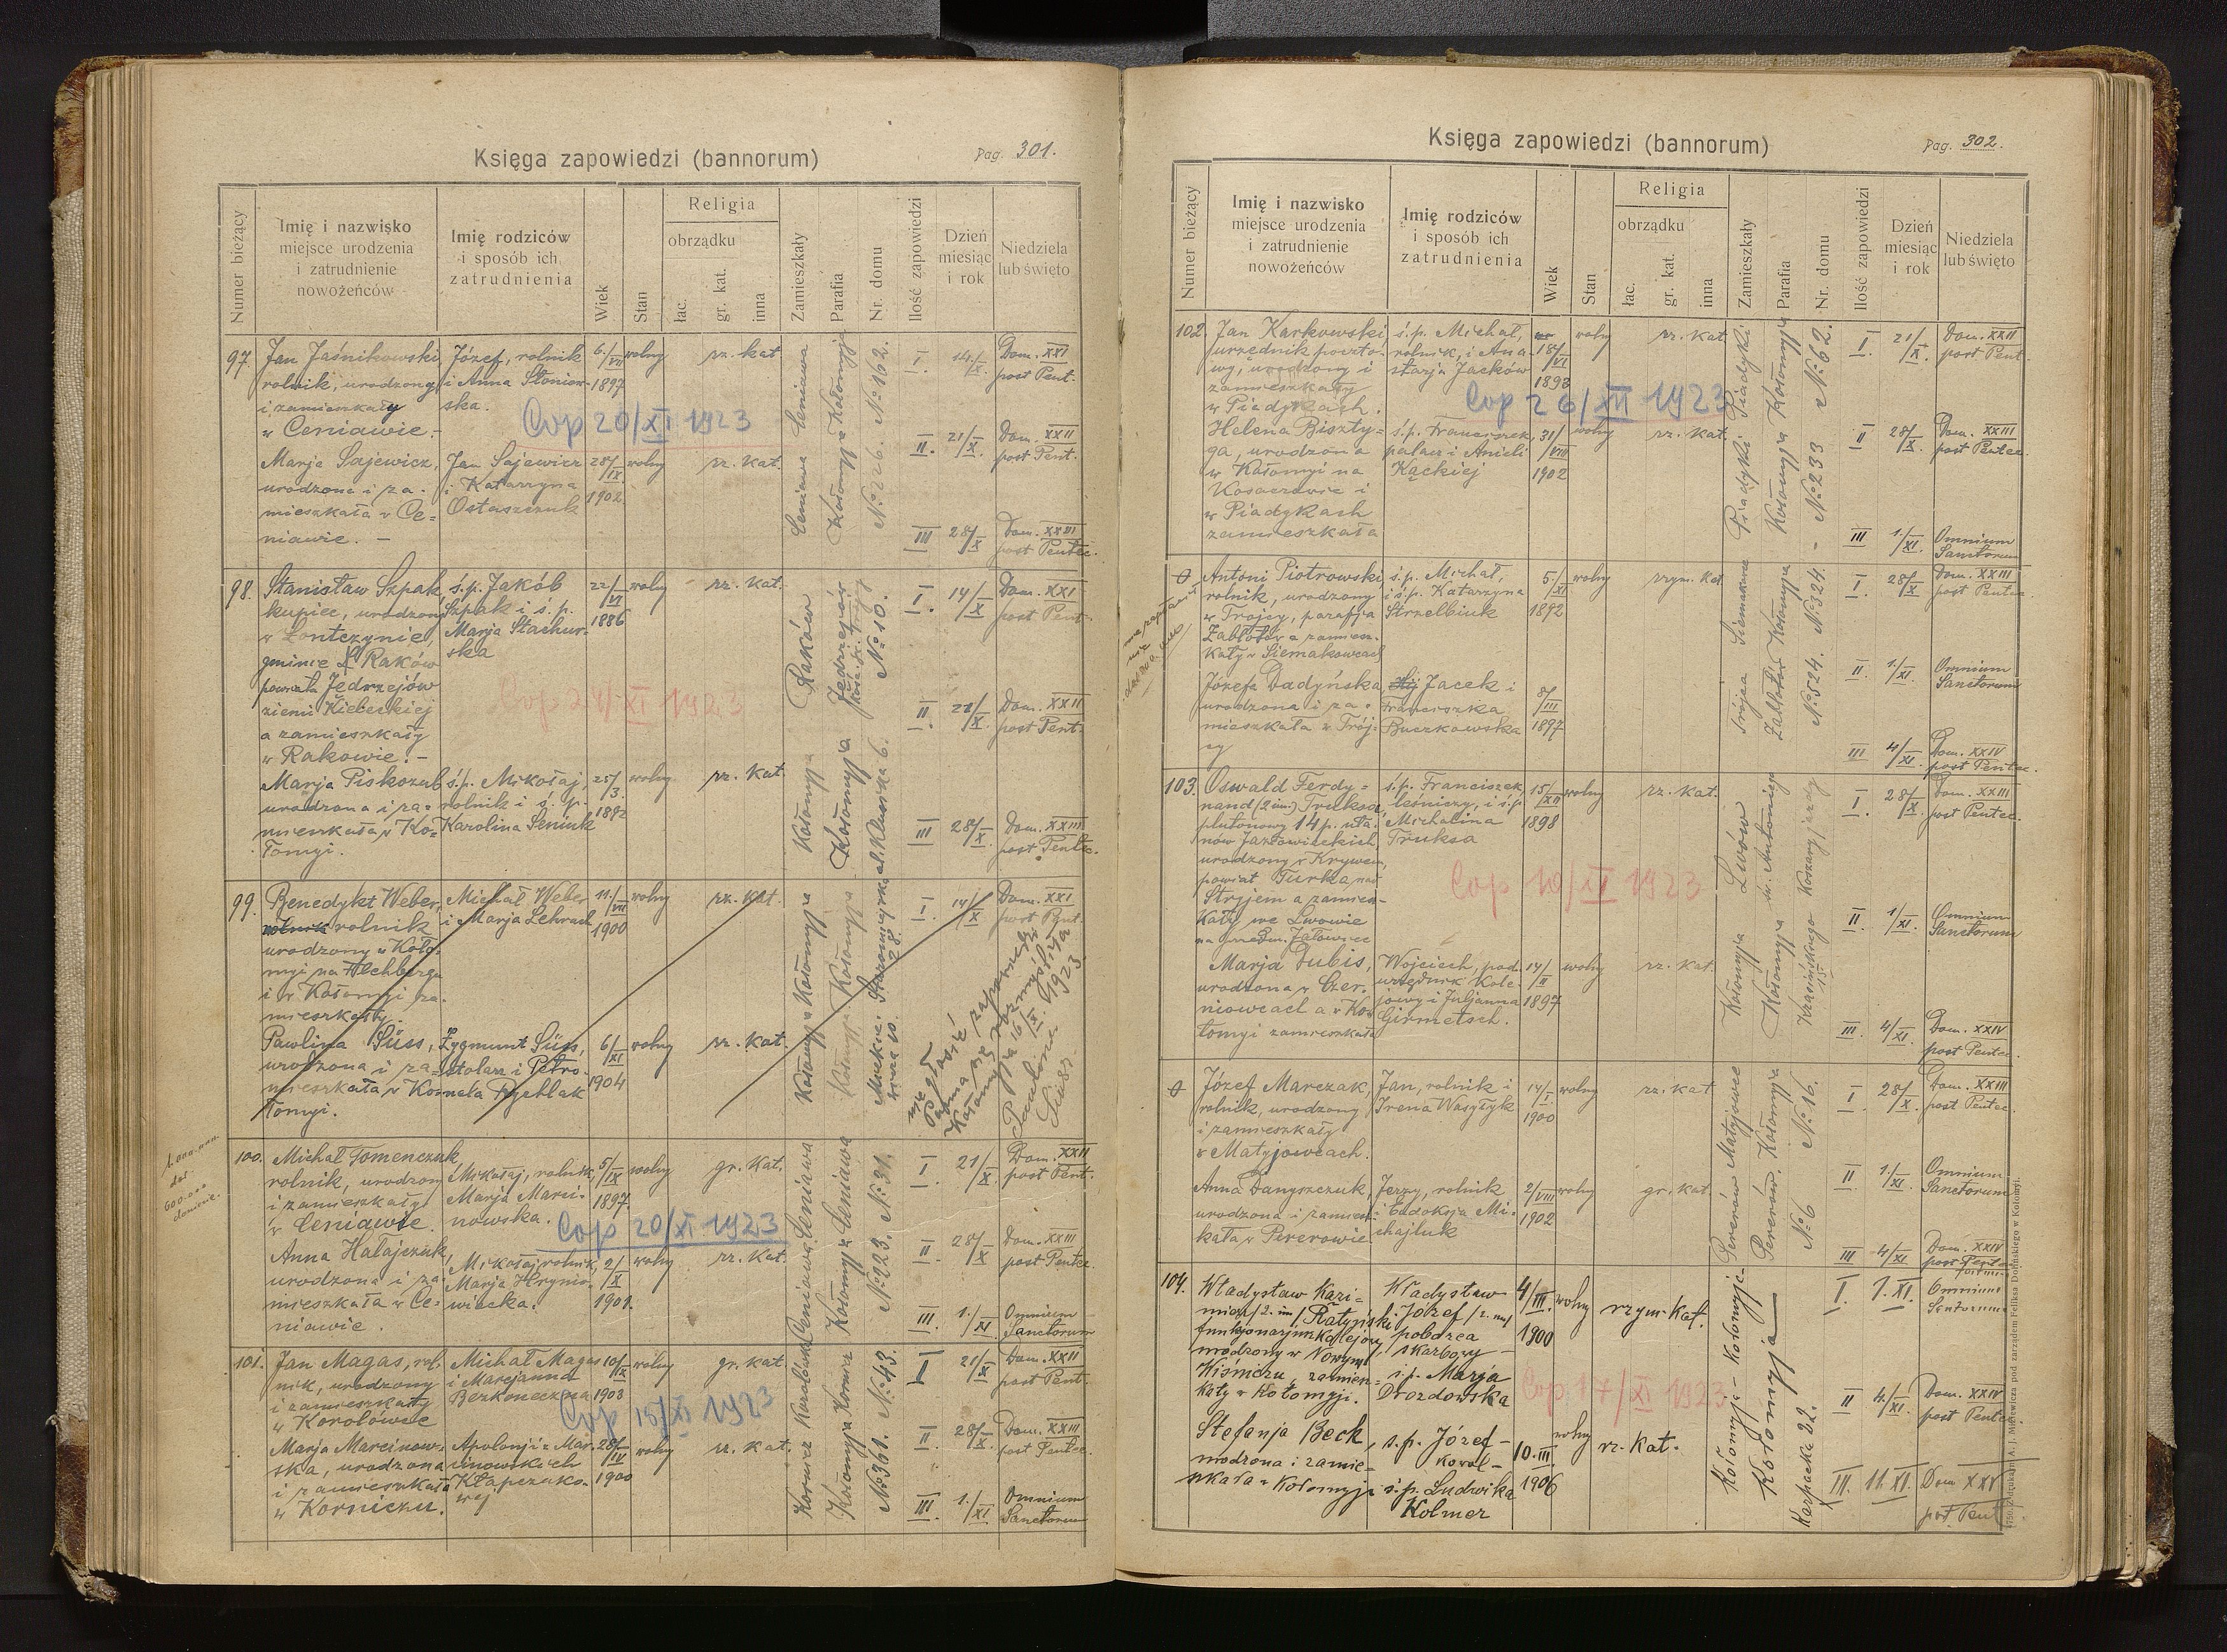 Księga zapowiedzi (bannorum)
Pag. 301.
Numer bieżący
Imię i nazwisko
miejsce urodzenia
i zatrudnienie
nowożeńców
Imię rodziców
i sposób ich
zatrudnienia
Wiek
Stan
Religia
obrządku
łac.
gr. kat.
inna
Zamieszkały
Parafia
Nr. domu
Ilość zapowiedzi
Dzień
miesiąc
i rok
Niedziela
lub święto
97.
Jan Jaśnikowski
rolnik, urodzony
i zamieszkały
w Ceniawie. -
Józef, rolnik
i Anna Słonior-
ska.
6./VII
1897
wolny
rz. kat
Cop 20/XI 1923
Marja Sajewicz,
urodzona i za-
mieszkała w Ce=
niawie. -
Jan Sajewicz
i Katarzyna
Ostaszczuk
28/IX
1902
wolny
rz. kat.
Ceniawa Ceniawa
Kołomyja Kołomyja
No 226. No 162.
I. 14./X. Dom. XXI
post Pent.
II. 21/X. Dom. XXII
post Pent.
III 28/X Dom. XXIII
post Pentec.
98.
Stanisław Szpak,
kupiec, urodzony
w
gminie Raków
powiatu Jędrzejów
ziemi Kieleckiej
a zamieszkały
w Rakowie. -
ś.p. Jakób
Szpak i ś. p.
Marja Stachur-
ska
22/VI
1886
wolny
rz. kat.
Cop 24/XI 1923
Marja Piskozub
urodzona i za=
mieszkała w Ko=
łomyi.
ś.p. Mikołaj,
rolnik i ś. p.
Karolina Seniuk
25/3.
1892
wolny
rz. kat.
Kołomyja Raków
Kołomyja Jędrzejów
No 10.
I. 14/X Dom. XXI
post Pent.
II. 21/X. Dom. XXII
post Pent.
III 28/X. Dom. XXIII
post Pentec.
99.
Benedykt Weber,
rolnik rolnik
urodzony w Koło-
myi na Flehberga
i w Kołomyi za-
mieszkały.
Michał Weber
i Marja
11./VII
1900
wolny
rz. kat.
Pawlina Süss,
urodzona i za=
mieszkała w Ko=
łomyi.
Zygmunt Süss,
stolarz i Petro-
nela Rychlak
6/XI
1904
wolny
rz. kat.
Kołomyja Kołomyja
Kołomyja Kołomyja
I. 14/X Dom. XXI
post Pent.
nie głosić!
Kołomyja 16/X. 1923
Paulina Süss
1.000.000
dał
600.000
100.
Michał Tomenczuk
rolnik, urodzony
i zamieszkały
w Ceniawie.
Mikołaj, rolnik,
Marja Marci-
nowska.
5/IX
1897.
wolny
gr. kat.
Cop 20/XI 1923
Anna Hałajczuk,
urodzona i za-
mieszkała w Ce-
niawie.
Mikołaj rolnik,
Marja Hrynio-
wiecka.
2/X
1901.
wolny
rz. kat.
Ceniawa. Ceniawa
Kołomyja Ceniawa
No 223. No 31.
I 21/X. Dom. XXII
post Pent.
II 28/X Dom. XXIII
post Pentec.
III. 1./XI Omnium
Sanctorum
101.
Jan Magas, rol-
nik, urodzony
i zamieszkały
w Korolówce
Michał Magas
i Marejanna
Bezkoneczna
10/IX
1903
wolny
gr. kat.
Cop 15/XI 1923
Marja Marcinow-
ska, urodzona
i zamieszkała
w Korniczu.
Apolonji z Mar-
cinowskich
28/IV
1900
wolny
rz. kat.
Kornicz Korolówka
Kołomyja Kornicz
No 361. No 43.
I 21/X Dom. XXII
post Pent.
II 28/X. Dom. XXIII
post Pentec.
III. 1./XI. Omnium
Sanctorum
Księga zapowiedzi (bannorum)
Pag. 302.
Numer bieżący
Imię i nazwisko
miejsce urodzenia
i zatrudnienie
nowożeńców
Imię rodziców
i sposób ich
zatrudnienia
Wiek
Stan
Religia
obrządku
łac.
gr. kat.
inna
Zamieszkały
Parafia
Nr. domu
Ilość zapowiedzi
Dzień
miesiąc
i rok
Niedziela
lub święto
102.
Jan Karkowski
urzędnik poczto-
wy, urodzony i
zamieszkały
w Piadykach.
ś.p. Michał,
rolnik, i Ana-
stazja Jacków
18/VI
1893
wolny
rz. kat.
Cop 26/XII 1923
Helena Biszty=
ga, urodzona
w Kołomyi na
Kosaczowie i
w Piadykach
zamieszkała
ś.p. Franciszek,
palacz i Anieli
Kąckiej
31/VIII
1902
wolny
rz. kat.
Piadyki Piadyki
Kołomyja Kołomyja
No 233 No 62.
I. 21/X. Dom. XXII
post Pent.
II 28/X. Dom. XXIII
post Pentec.
III 1./XI. Omnium
Sanctorum
Antoni Piotrowski
rolnik, urodzony
w Trójcy, parafja
Zabłotów a zamiesz-
kały w Siemakowcach
ś.p. Michał,
i ś.p. Katarzyna
Strzelbiuk
5./XI
1892
wolny
rzym. kat
Józefa Dadyńska,
urodzona i za=
mieszkała w Trój-
cy
Jacek i
Franciszka
Buczkowska
8/III
1897
Trójca Siemakowce
Zabłotów Kołomyja
No 524. No 324.
I. 28/X Dom. XXIII
post Pentec.
II. 1./XI. Omnium
Sanctorum
III 4/XI. Dom. XXIV
post Pentec.
103.
Oswald Ferdy=
nand (2 im.) Truksa,
plutonowy 14 p. uła-
nów Jazłowieckich,
urodzony w Krywem,
powiat Turka nad
Stryjem a zamiesz-
kały we Lwowie
ś.p. Franciszek,
leśniczy, i ś.p.
Michalina
Truksa
15/XII
1898
wolny
rz. kat.
Marja Dubis,
urodzona w Czer-
niowcach a w Ko-
łomyi zamieszkała
Wojciech, pod-
urzędnik kole-
jowy i Juljanna
Girmetsch.
14/II
1897
wolny
rz. kat.
Kołomyja Lwów
Kołomyja św. Antoniego
Krasińskiego 15.
I. 28/X Dom. XXIII
post Pentec.
II. 1/XI. Omnium
Sanctorum
III. 4/XI. Dom. XXIV
post Pentec.
Józef Marczak,
rolnik, urodzony
i zamieszkały
w Matyjowcach.
Jan, rolnik i
Irena Wasyłyk
14/I.
1900
wolny
rz. kat
Anna Danyszczuk,
urodzona i zamiesz-
kała w Pererowie
Jerzy, rolnik
i Eudoksja Mi-
chajluk
2/VIII
1902
wolny
gr. kat
Pererów Matyjowce
Pererów. Kołomyja
No 6 No 16.
I 28/X. Dom. XXIII
post Pentec.
II 1./XI. Omnium
Sanctorum
III 4/XI Dom. XXIV
post Pentec.
104.
Władysław Kazi=
mierz /2. im/ Ratyński
funkcjonarjusz kolejowy
urodzony w Nowym
Wiśniczu, zamiesz=
kały w Kołomyji.
Władysław
Józef /2. im/
poborca
skarbowy -
i ś.p. Marja
Drozdowska
4/III.
1900
wolny
rzym. kat.
Cop. 17/XI 1923
Stefanja Beck,
urodzona i zamie=
szkała w Kołomyji
ś.p. Józef -
kowal -
i ś.p. Ludwika
Kolmer
10.III.
1906
wolny
rz. kat.
Kołomyja - Kołomyja
Kołomyja
Karpacka 22.
I. 1. XI. Omnium
Sanctorum
II 4./XI. Dom. XXIV
post Pentec.
III. 11. XI. Dom XXV
post. Pent